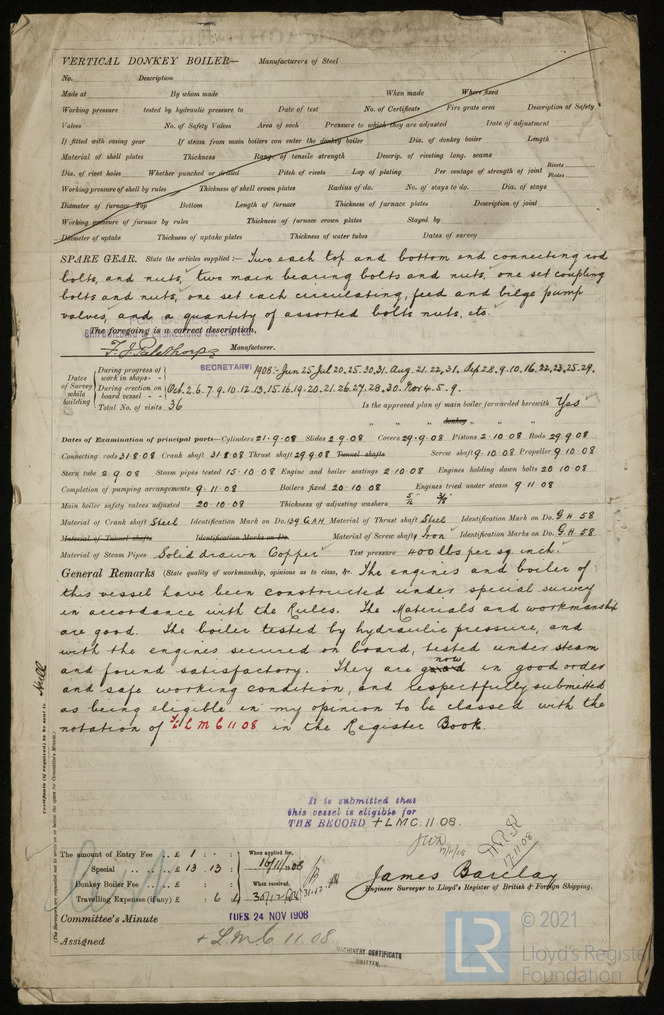 VERTICAL DONKEY BOILER— Manufacturers of Steel
No. Description
Made at By whom made When made Where fixed
Working pressure tested by hydraulic pressure to Date of test No. of Certificate Fire grate area Description of Safety
Valves No. of Safety Valves Area of each Pressure to which they are adjusted Date of adjustment
If fitted with easing gear If steam from main boilers can enter the donkey boiler Dia. of donkey boiler Length
Material of shell plates Thickness Range of tensile strength Descrip. of riveting long. seams
Dia. of rivet holes Whether punched or drilled Pitch of rivets Lap of plating Per centage of strength of joint Rivets Plates
Working pressure of shell by rules Thickness of shell crown plates Radius of do. No. of stays to do. Dia. of stays
Diameter of furnace Top Bottom Length of furnace Thickness of furnace plates Description of joint
Working pressure of furnace by rules Thickness of furnace crown plates Stayed by
Diameter of uptake Thickness of uptake plates Thickness of water tubes Dates of survey
SPARE GEAR. State the articles supplied:— Two each top and bottom end connecting rod
bolts, and nuts, two main bearing bolts and nuts, one set coupling
bolts and nuts, one set each circulating, feed and bilge pump
valves, and a quantity of assorted bolts nuts, etc.
The foregoing is a correct description,
F. J. Palethorpe Manufacturer.
SECRETARY
Dates of Survey while building
During progress of work in shops - - 1908:- Jun 25, Jul 20. 25. 30. 31. Aug. 21. 22, 31. Sep 28. 9. 10. 16. 22, 23. 25. 29.
During erection on board vessel - - Oct. 2. 6. 7. 9. 10. 12. 13. 15. 16. 19. 20. 21. 26. 27. 28. 30. Nov 4. 5. 9.
Total No. of visits 36 Is the approved plan of main boiler forwarded herewith Yes
" " donkey " " "
Dates of Examination of principal parts—Cylinders 21.9.08 Slides 2.9.08 Covers 29.9.08 Pistons 2.10.08 Rods 29.9.08
Connecting rods 31.8.08 Crank shaft 31.8.08 Thrust shaft 29.9.08 Tunnel shafts Screw shaft 9.10.08 Propeller 9.10.08
Stern tube 2.9.08 Steam pipes tested 15.10.08 Engine and boiler seatings 2.10.08 Engines holding down bolts 20.10.08
Completion of pumping arrangements 9.11.08 Boilers fixed 20.10.08 Engines tried under steam 9.11.08
Main boiler safety valves adjusted 20.10.08 Thickness of adjusting washers 3/8
Material of Crank shaft Steel Identification Mark on Do. 139 G.A.H. Material of Thrust shaft Steel Identification Mark on Do. G.H 58
Material of Tunnel shafts Identification Marks on Do. Material of Screw shafts Iron Identification Marks on Do. G.H 58
Material of Steam Pipes Solid drawn Copper Test pressure 400 lbs per sq. inch.
General Remarks (State quality of workmanship, opinions as to class, &c. The engines and boiler of
this vessel have been constructed under special survey
in accordance with the Rules. The Materials and workmanship
are good. The boiler tested by hydraulic pressure, and
with the engines secured on board, tested under steam
and found satisfactory. They are now in good order
and safe working condition, and respectfully submitted
as being eligible in my opinion to be classed with the
notation of + L M C 11 08 in the Register Book.
Certificate (if required) to be sent to Hull
(The Surveyors are requested not to write on or below the space for Committee's Minute.)
It is submitted that
this vessel is eligible for
THE RECORD + LMC. 11. 08.
17/11/08
17.11.08
The amount of Entry Fee .. £ 1 : . : When applied for,
Special .. .. £ 13 : 13 : 16/11/08
Donkey Boiler Fee .. .. £ : : When received,
Travelling Expenses (if any) £ : 6 : 4
James Barclay
Engineer Surveyor to Lloyd's Register of British & Foreign Shipping.
Committee's Minute TUES 24 NOV 1908
Assigned + L.M.C 11.08.
MACHINERY CERTIFICATE
WRITTEN.
LR
© 2021
Lloyd's Register
Foundation